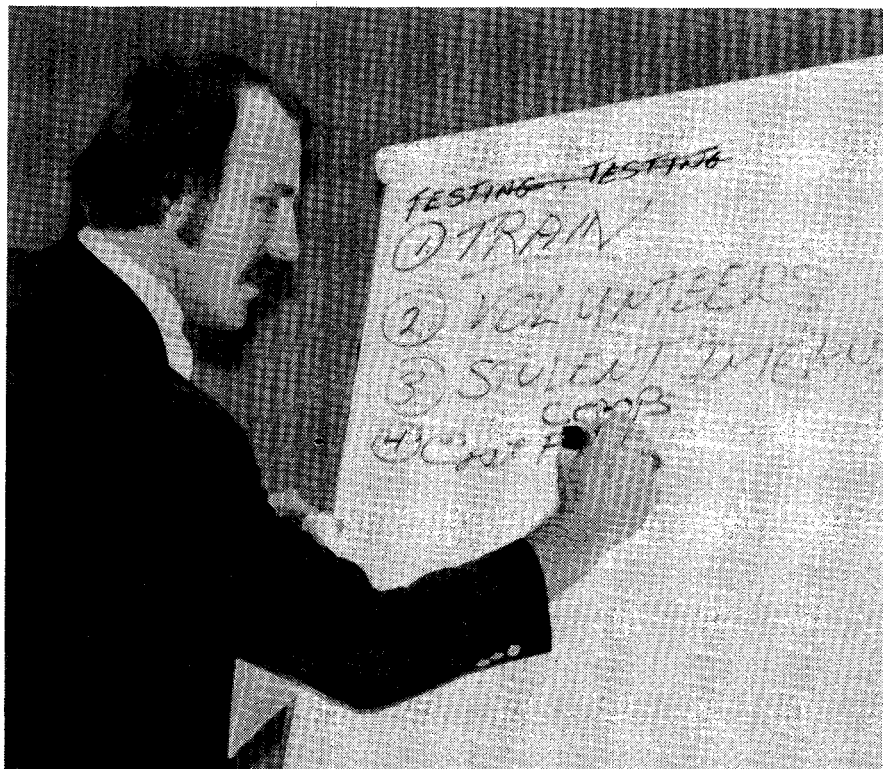 TESTING TESTING
① TRAIN
② VOLUNTEERS
③ STUDENT INTERN
COMPS
④ Cost